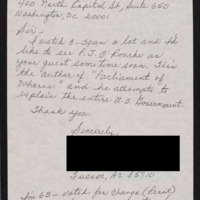 400 North Capitol St, Suite 650
Washington, D.C. 20001
Sir -
I watch C-Span a lot and I'd
like to see P. J. O'Rourke as
your guest sometime soon. He's
the author of "Parliament of
Whores" and he attempts to
explain the entire U.S. Government.
Thank you.
Sincerely,
Tucson, AZ 85710
I'm 63 - voted for change (Perot)